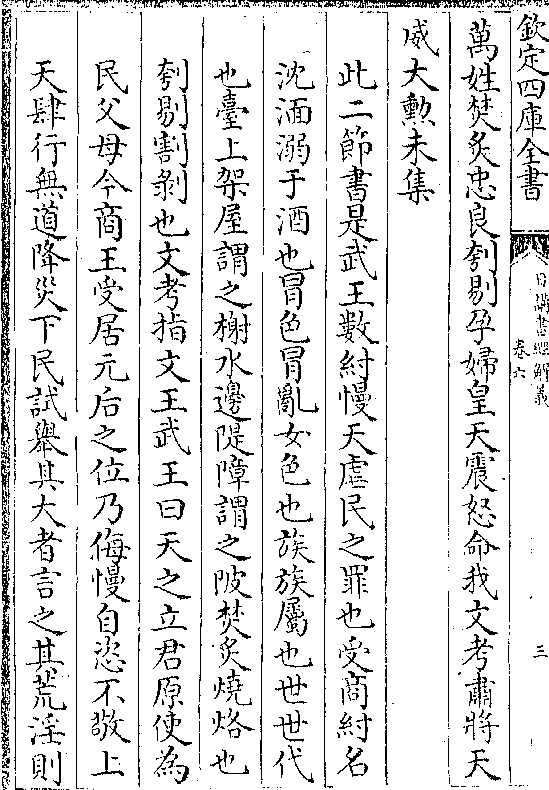 欽定四庫全書
日講書經解義
卷六
三
萬姓焚炙忠良刳剔孕婦皇天震怒命我文考肅將天
威大勲未集
此二節書是武王數紂慢天虐民之罪也受商紂名
沈湎溺于酒也冒色冒亂女色也族族屬也世世代
也臺上架屋謂之榭水邊隄障謂之陂焚炙燒烙也
刳剔割剝也文考指文王武王曰天之立君原使為
民父母今商王受居元后之位乃侮慢自恣不敬上
天肆行無道降災下民試舉其大者言之其荒淫則